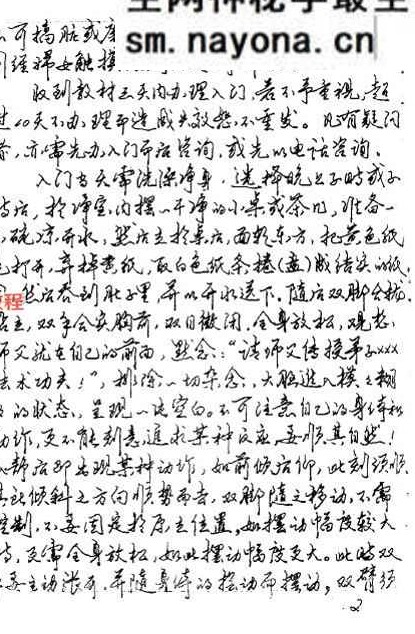 全网神秘学最全
sm.nayona.cn
不可搞脏或库
妇经妇女触摸
收到教材三天内办理入门，若不予重视，超
过10天不办理而造成失教愁，不重发。凡有疑问
者，亦需先办入门而后咨询，或先以电话咨询。
入门当天需洗澡净身，选择晚上子时或子
时后，于净室内摆一干净的小桌或茶几，准备一
碗凉开水，然后立于桌后，面朝东方，把黄色纸
包打开，弃掉黄纸，取白色纸条捲(叠)成结实的纸
程
然后吞到肚子里，并以开水送下。随后双脚分
站立，双手合实胸前，双目微闭，全身放松，观想
师父就在自己的前面，默念：“请师父传授弟子xxx
法术功夫！”，排除一切杂念，大脑进入模糊
的状态，呈现一片空白。不可注意自己的身体和
动作，更不能刻意追求某种反应，要顺其自然！
入静后即出现某种动作，如前倾后仰，此刻须顺
其此倾斜之方向顺势而去，双脚随之移动，不需
控制，不要固定于原来位置，如摆动幅度较大
时，更需全身放松，如此摆动幅度更大。此时双
要主动张开，并随身体的摇动而摆动，双臂须
2